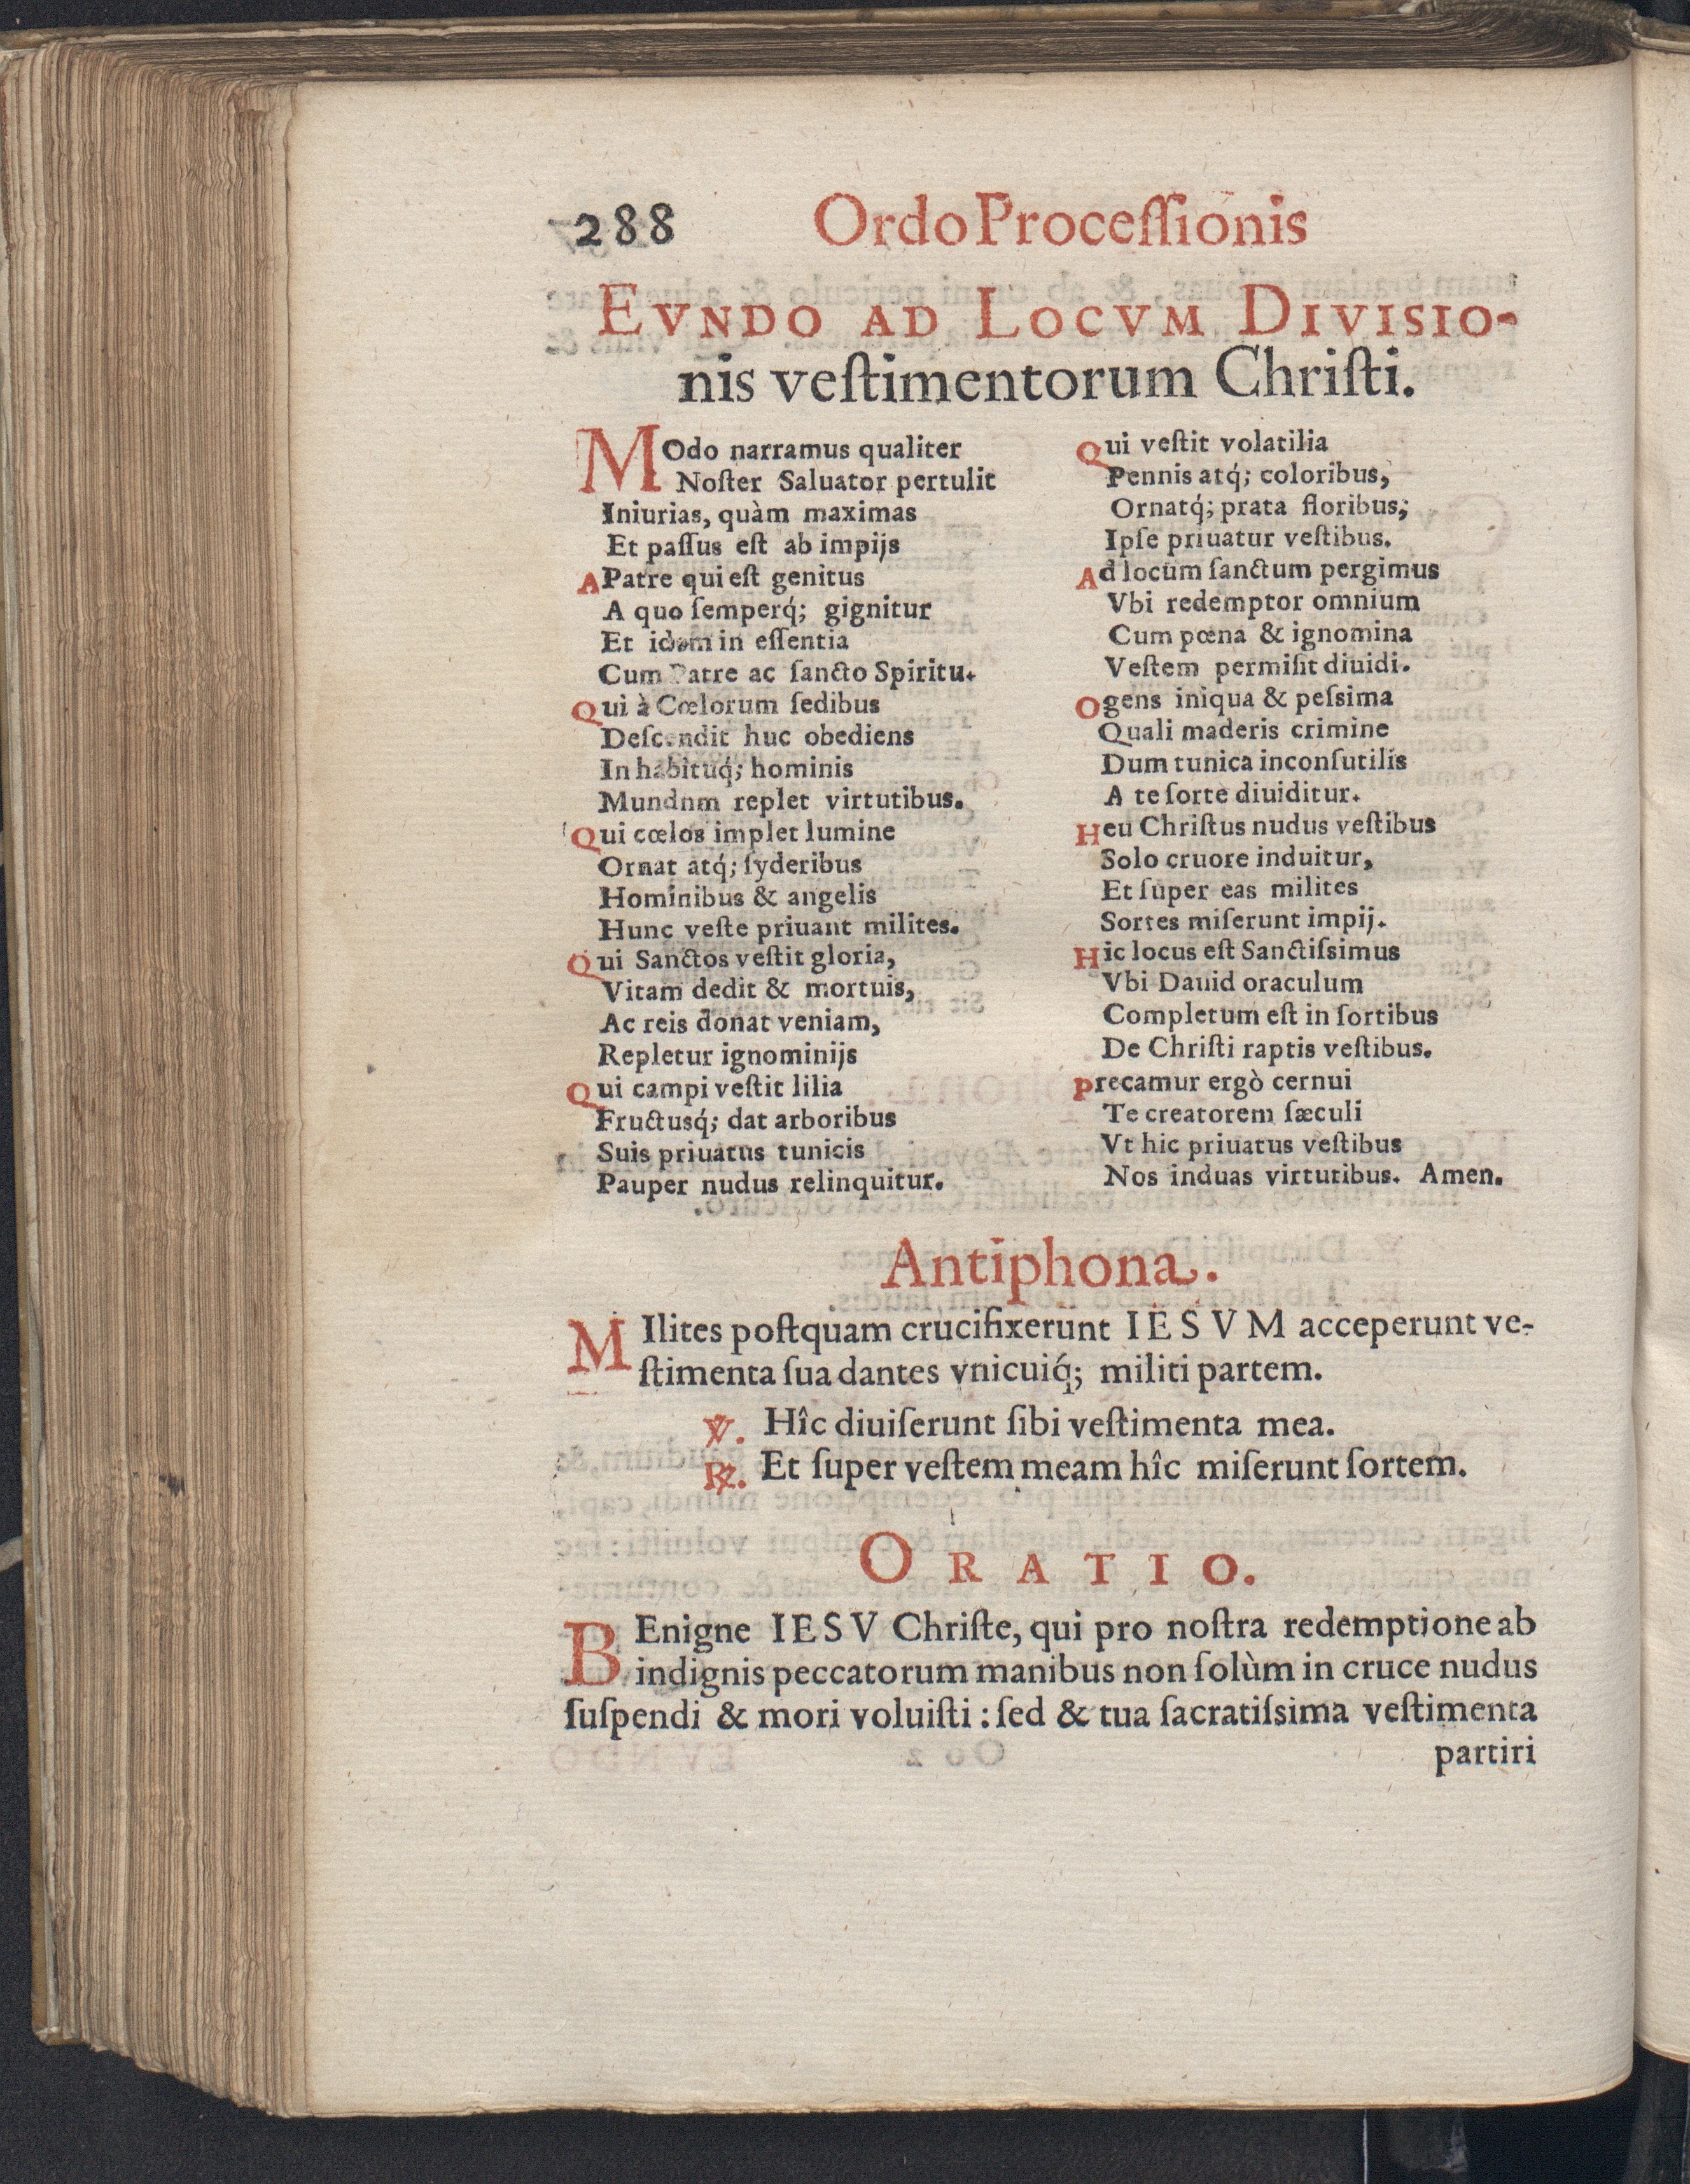 288 Ordo Proceſſionis
EVNDO AD LOCVM DIVISIO-
nis veſtimentorum Chriſti.
MOdo narramus qualiter
Noſter Saluator pertulit
Iniurias, quàm maximas
Et paſſus eſt ab impijs
A Patre qui eſt genitus
A quo ſemperq́; gignitur
Et idem in eſſentia
Cum Patre ac ſancto Spiritu.
Qui à Cœlorum ſedibus
Deſcendit huc obediens
In habituq́; hominis
Mundnm replet virtutibus.
Qui cœlos implet lumine
Ornat atq́; ſyderibus
Hominibus & angelis
Hunc veſte priuant milites.
Qui Sanctos veſtit gloria,
Vitam dedit & mortuis,
Ac reis donat veniam,
Repletur ignominijs
Qui campi veſtit lilia
Fructusq́; dat arboribus
Suis priuatus tunicis
Pauper nudus relinquitur.
Qui veſtit volatilia
Pennis atq́; coloribus,
Ornatq́; prata floribus;
Ipſe priuatur veſtibus.
Ad locum ſanctum pergimus
Vbi redemptor omnium
Cum pœna & ignomina
Veſtem permiſit diuidi.
O gens iniqua & peſsima
Quali maderis crimine
Dum tunica inconſutilis
A te ſorte diuiditur.
Heu Chriſtus nudus veſtibus
Solo cruore induitur,
Et ſuper eas milites
Sortes miſerunt impij.
Hic locus eſt Sanctiſsimus
Vbi Dauid oraculum
Completum eſt in ſortibus
De Chriſti raptis veſtibus.
Precamur ergò cernui
Te creatorem ſæculi
Vt hic priuatus veſtibus
Nos induas virtutibus. Amen.
Antiphona.
MIlites poſtquam crucifixerunt IESVM acceperunt ve-
ſtimenta ſua dantes vnicuiq́; militi partem.
℣. Hîc diuiſerunt ſibi veſtimenta mea.
℟. Et ſuper veſtem meam hîc miſerunt ſortem.
ORATIO.
BEnigne IESV Chriſte, qui pro noſtra redemptione ab
indignis peccatorum manibus non ſolùm in cruce nudus
ſuſpendi & mori voluiſti : ſed & tua ſacratiſsima veſtimenta
partiri